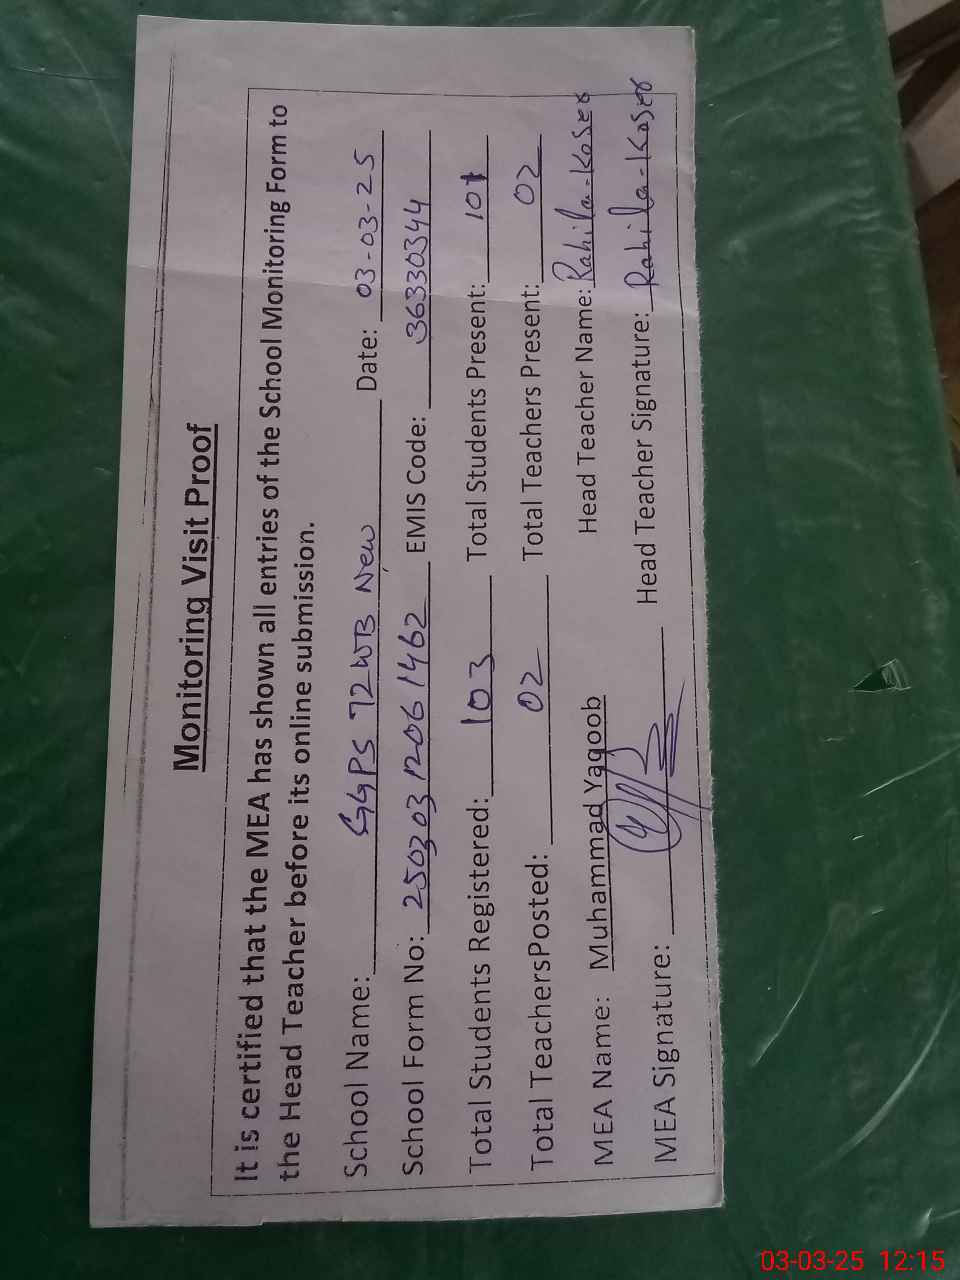 Monitoring Visit Proof
It is certified that the MEA has shown all entries of the School Monitoring Form to
the Head Teacher before its online submission.
School Name: GGPS 72 WB New Date: 03-03-25
School Form No: 250303 1206 1462 EMIS Code: 36330344
Total Students Registered: 103 Total Students Present: 101
Total TeachersPosted: 02 Total Teachers Present: 02
MEA Name: Muhammad Yaqoob Head Teacher Name: Rahila-Koser
MEA Signature: Head Teacher Signature: Rahila-Koser
03-03-25 12:15